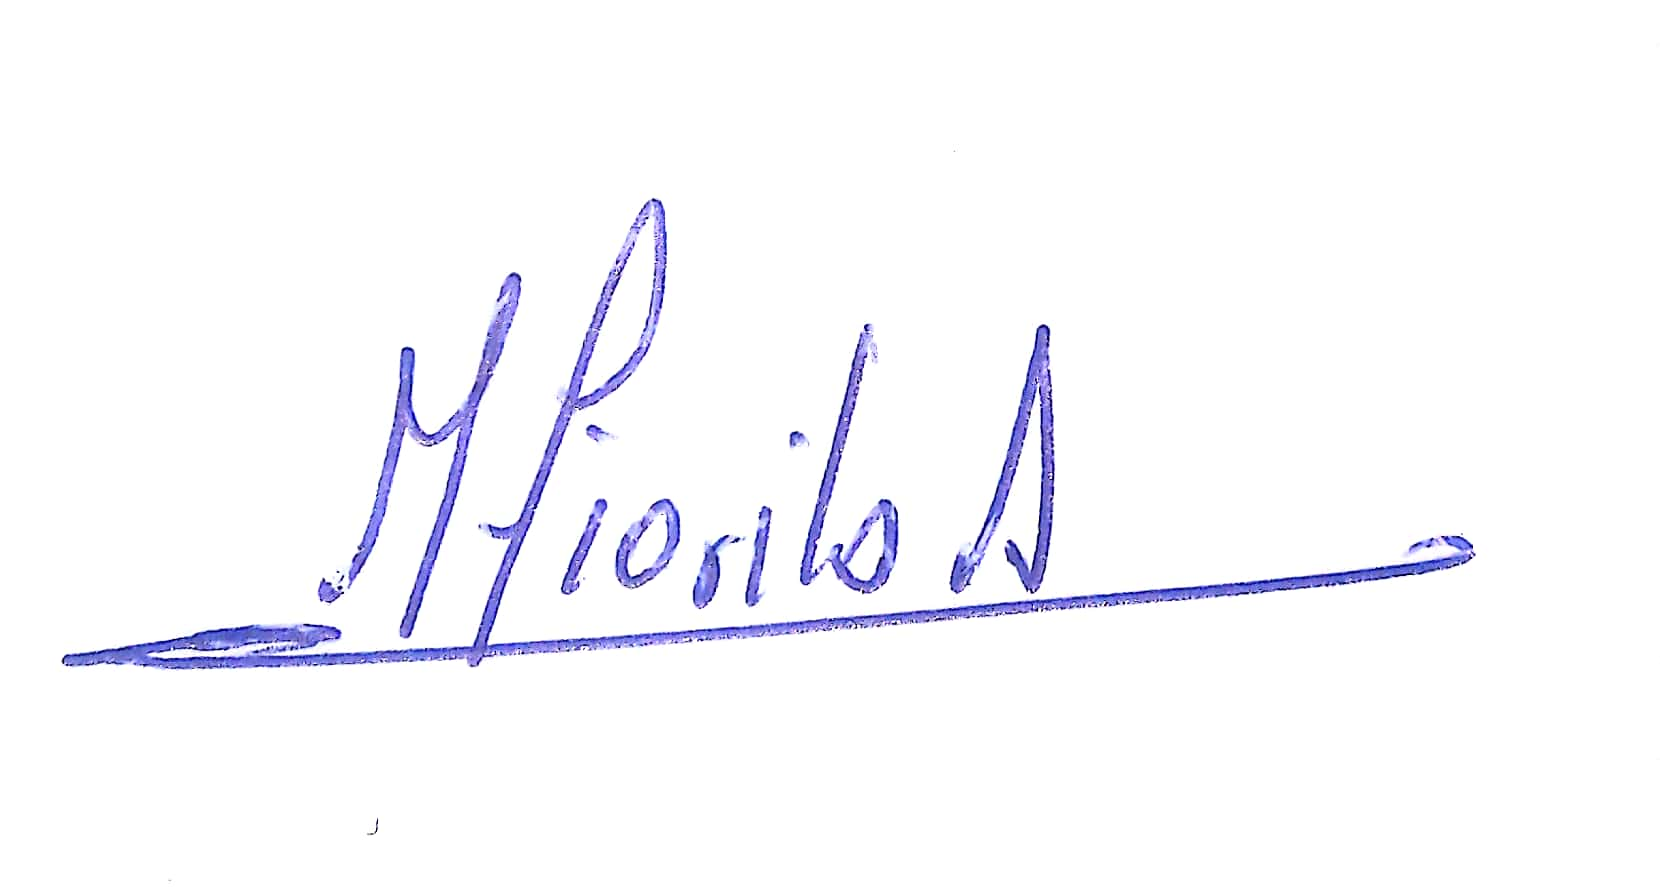 M Fiorilo A